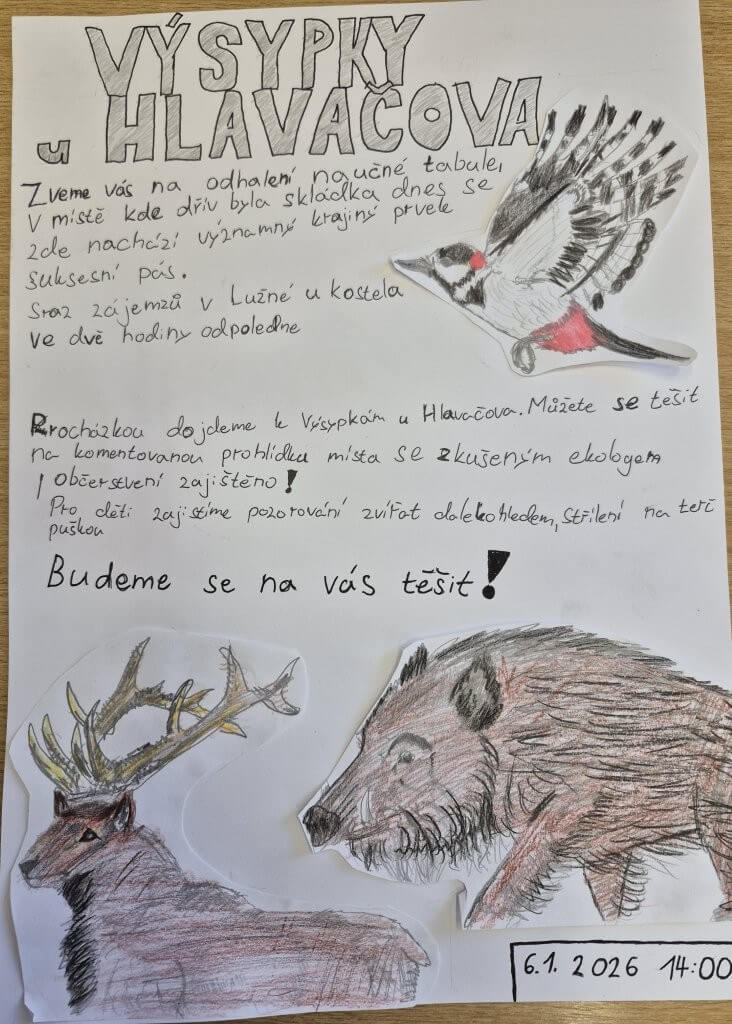 VÝSYPKY
u HLAVAČOVA
Zveme vás na odhalení naučné tabule,
V místě kde dřív byla skládka dnes se
zde nachází významný krajiný prvek
suksesní pás.
Sraz zájemzů v Lužné u kostela
ve dvě hodiny odpoledne
Procházkou dojdeme k Výsypkám u Hlavačova. Můžete se těšit
na komentovanou prohlídku místa se zkušeným ekologem
! Občerstvení zajištěno!
Pro děti zajistíme pozorování zvířat dalekohledem, střílení na terč
puškou
Budeme se na vás těšit!
6.1. 2026 14:00